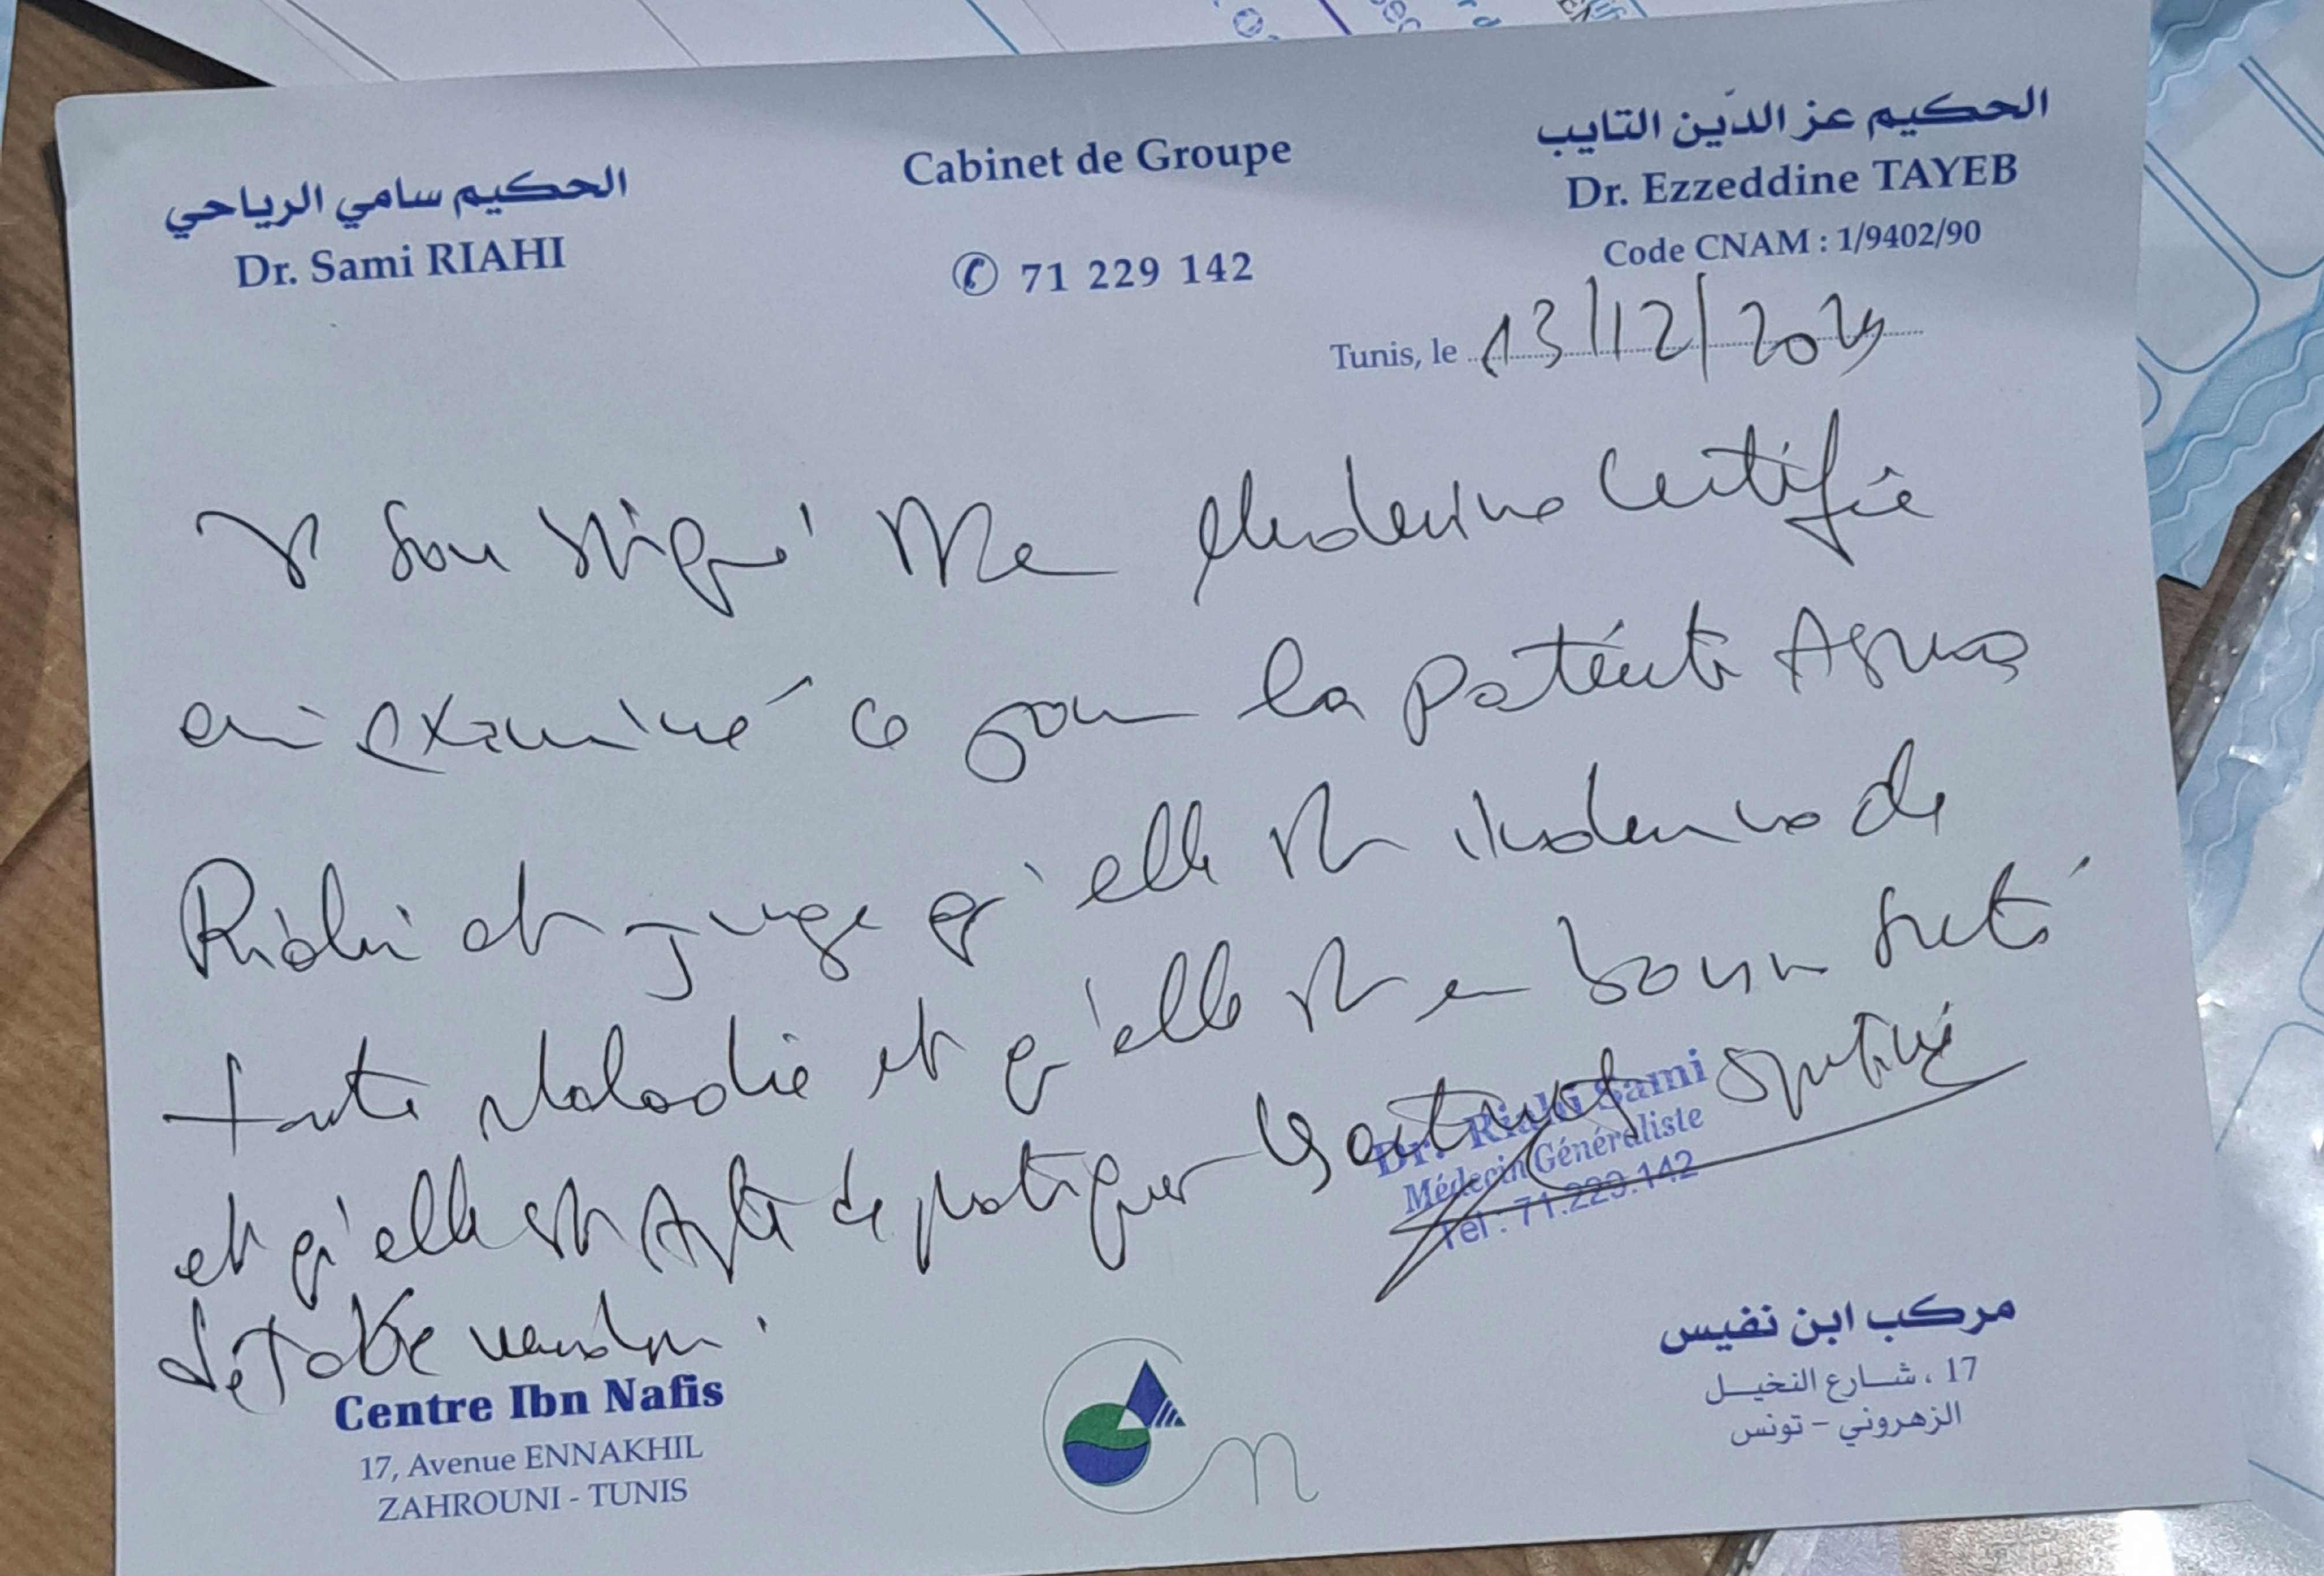 الحكيم سامي الرياحي
Dr. Sami RIAHI
Cabinet de Groupe
✆ 71 229 142
الحكيم عز الدّين التايب
Dr. Ezzeddine TAYEB
Code CNAM : 1/9402/90
Tunis, le 13/12/2024
Je soussigné certifie
avoir examiné ce jour la patiente Asma
Riahi et juge qu'elle est indemne de
toute maladie et qu'elle est en bonne santé
et qu'elle est apte de pratiquer sportive
Dr. Riahi Sami
Médecin Généraliste
Tel : 71.229.142
Centre Ibn Nafis
17, Avenue ENNAKHIL
ZAHROUNI - TUNIS
مركب ابن نفيس
17 ، شارع النخيل
الزهروني - تونس